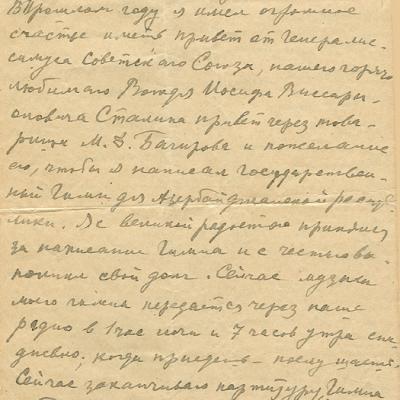 В прошлом году я имел огромное
счастье иметь привет от Генералис-
симуса Советского Союза, нашего горячо
любимого Вождя Иосифа Виссари-
оновича Сталина привет через това-
рища М. Д. Багирова и пожелание
его, чтобы я написал государствен-
ный Гимн для Азербайджанской респуб-
лики. Я с великой радостью принялся
за написание Гимна и с честью вы-
полнил свой долг. Сейчас музыка
моего гимна передается через наше
радио в 1 час ночи и 7 часов утра еже-
дневно, когда приедешь –
Сейчас заканчиваю партитуру Гимна